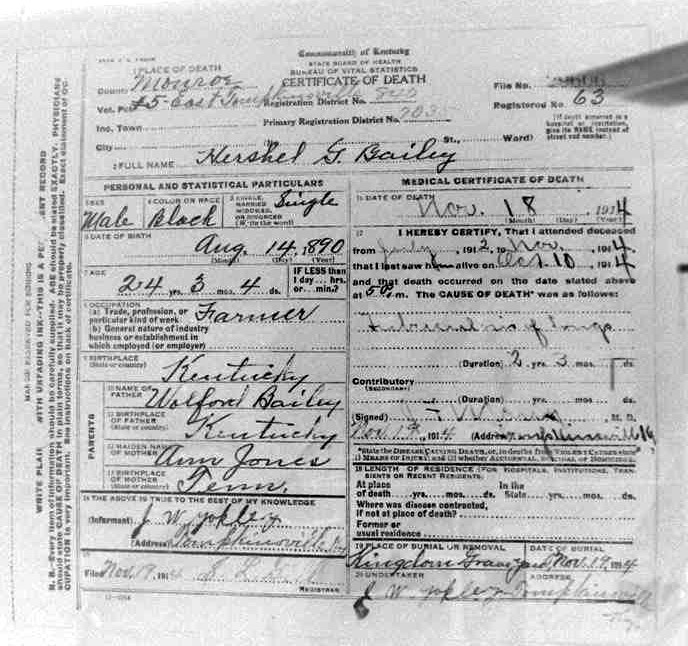 Commonwealth of Kentucky
STATE BOARD OF HEALTH
BUREAU OF VITAL STATISTICS
CERTIFICATE OF DEATH
1 PLACE OF DEATH
County Monroe
Vot. Pct. #5-East Tompkinsville
Registration District No. 840
File No.
Inc. Town
Primary Registration District No. 703
Registered No. 63
City (No. St., Ward)
[If death occurred in a hospital or institution, give its NAME instead of street and number.]
2 FULL NAME Hershel G. Bailey
PERSONAL AND STATISTICAL PARTICULARS
3 SEX Male
4 COLOR OR RACE Black
5 SINGLE, MARRIED, WIDOWED, OR DIVORCED (Write the word) Single
6 DATE OF BIRTH
Aug. 14, 1890
(Month) (Day) (Year)
7 AGE
24 yrs. 3 mos. 4 ds.
IF LESS than 1 day... hrs. or... min.?
8 OCCUPATION
(a) Trade, profession, or particular kind of work Farmer
(b) General nature of industry
business or establishment in
which employed (or employer)
9 BIRTHPLACE
(State or country) Kentucky
PARENTS
10 NAME OF FATHER Wolford Bailey
11 BIRTHPLACE OF FATHER (State or country) Kentucky
12 MAIDEN NAME OF MOTHER Ann Jones
13 BIRTHPLACE OF MOTHER (State or country) Tenn.
14 THE ABOVE IS TRUE TO THE BEST OF MY KNOWLEDGE
(Informant) J. W. Yokley
(Address) Tompkinsville Ky
15
Filed Nov. 19, 1914
REGISTRAR
MEDICAL CERTIFICATE OF DEATH
16 DATE OF DEATH
Nov. 18 1914
(Month) (Day) (Year)
17 I HEREBY CERTIFY, That I attended deceased
from 1912, to Nov. 1914,
that I last saw him alive on Oct. 10, 1914
and that death occurred on the date stated above
at m. The CAUSE OF DEATH* was as follows:
Tuberculosis of lungs
(Duration) 2 yrs. 3 mos. ds.
Contributory
(SECONDARY)
(Duration) yrs. mos. ds.
(Signed) M. D.
Nov. 1914 (Address) Tompkinsville Ky
*State the DISEASE CAUSING DEATH, or, in deaths from VIOLENT CAUSES state (1) MEANS OF INJURY; and (2) whether ACCIDENTAL, SUICIDAL or HOMICIDAL.
18 LENGTH OF RESIDENCE (FOR HOSPITALS, INSTITUTIONS, TRANSIENTS OR RECENT RESIDENTS.)
At place of death yrs. mos. ds. In the State yrs. mos. ds.
Where was disease contracted,
if not at place of death?
Former or
usual residence
19 PLACE OF BURIAL OR REMOVAL
Kingdom Grave yard
DATE OF BURIAL
Nov. 19, 1914
20 UNDERTAKER
J W Yokley
ADDRESS
Tompkinsville
Ky.
MARGIN RESERVED FOR BINDING
N. B.—Every item of information should be carefully supplied. AGE should be stated EXACTLY. PHYSICIANS
should state CAUSE OF DEATH in plain terms, so that it may be properly classified. Exact statement of OC-
CUPATION is very important. See instructions on back of certificate.